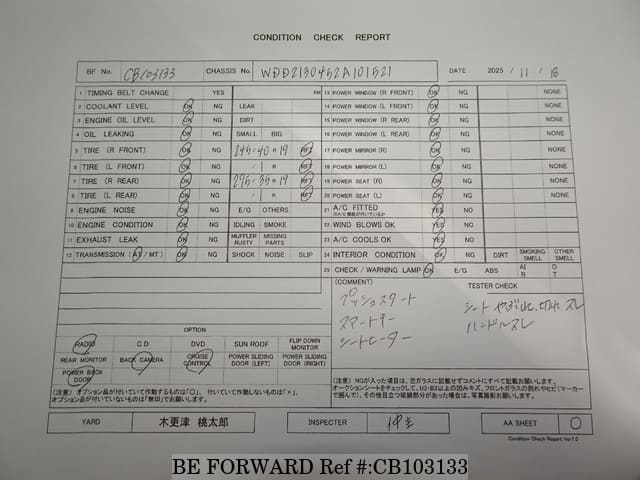 CONDITION CHECK REPORT
BF No. CB103133 CHASSIS No. WDD2130452A101521 DATE 2025 / 11 / 18
1 TIMSNG BELT CHANGE YES KM
2 COOLANT LEVEL OK NG LEAK
3 ENGINE OIL LEVEL OK NG DIRT
4 OIL LEAKING OK NG SMALL BIG
5 TIRE (R FRONT) OK NG 245/40R19 RFT
6 TIRE (L FRONT) OK NG / R RFT
7 TIRE (R REAR) OK NG 275/35R19 RFT
8 TIRE (L REAR) OK NG / R RFT
9 ENGINE NOISE OK NG E/G OTHERS
10 ENGINE CONDITION OK NG IDLING SMOKE
11 EXHAUST LEAK OK NG MUFFLER RUSTY MISSING PARTS
12 TRANSMISSION (AT/MT) OK NG SHOCK NOISE SLIP
13 POWER WINDOW (R FRONT) OK NG NONE
14 POWER WINDOW (L FRONT) OK NG NONE
15 POWER WINDOW (R REAR) OK NG NONE
16 POWER WINDOW (L REAR) OK NG NONE
17 POWER MIRROR (R) OK NG NONE
18 POWER MIRROR (L) OK NG NONE
19 POWER SEAT (R) OK NG NONE
20 POWER SEAT (L) OK NG NONE
21 A/C FITTED YES NO
※A/C機能が付いているか
22 WIND BLOWS OK YES NO
23 A/C COOLS OK YES NO
24 INTERIOR CONDITION OK NG DIRT SMOKING SMELL OTHER SMELL
25 CHECK / WARNING LAMP OK E/G ABS AI R O T
(COMMENT)
プッシュスタート
スマートキー
シートヒーター
TESTER CHECK
シートやぶれ、切れ スレ
ハンドルスレ
OPTION
RADIO C D DVD SUN ROOF FLIP DOWN MONITOR
REAR MONITOR BACK CAMERA CRUISE CONTROL POWER SLIDING DOOR (LEFT) POWER SLIDING DOOR (RIGHT)
POWER BACK DOOR
(注意) オプション品が付いていて作動するものは「○」、付いていて作動しないものは「×」、
オプション品が付いていないものは「無印」でお願いします。
(注意) NGが入った項目は、窓ガラスに記載せずコメントにすべて記載お願いします。
オークションシートをチェックして、U3・B3以上の凹みキズ、フロントガラスの割れやヒビ（マーカー
で囲んで）、その他目立つ破損部分があった場合は、写真撮影お願いします。
YARD 木更津 桃太郎 INSPECTER AA SHEET O
Condition Check Report Ver7.0
BE FORWARD Ref #:CB103133